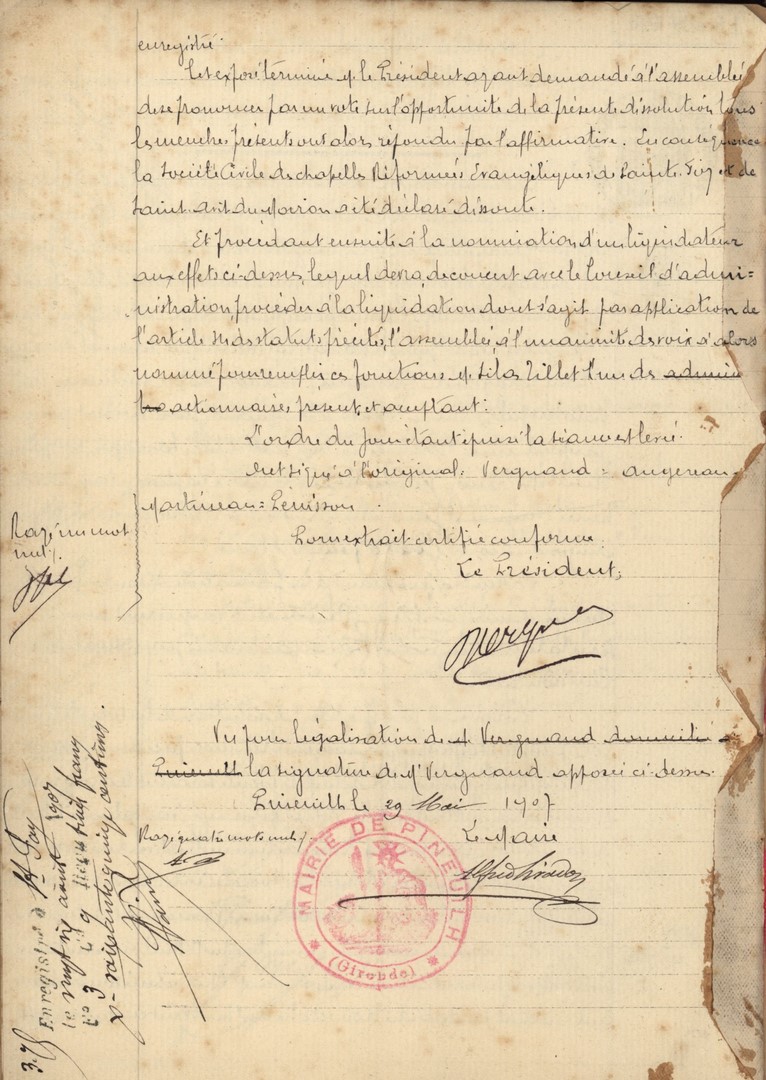 enregistré.
Cet exposé terminé M. le Président ayant demandé à l'assemblée
de se prononcer par un vote sur l'opportunité de la présente dissolution, tous
les membres présents ont alors répondu par l'affirmative. En conséquence
la Société Civile des chapelles Réformées Evangéliques de Sainte-Foy et de
Saint-avit du Moiron a été déclarée dissoute.
Et procédant ensuite à la nomination d'un liquidateur
aux effets ci-dessus, lequel devra, de concert avec le Conseil d'admi=
nistration, procéder à la liquidation dont s'agit par application de
l'article des statuts précités, l'assemblée, à l'unanimité des voix a alors
nommé pour remplir ces fonctions M. Silas Tillet l'un des admin
actionnaires, présent, et acceptant:
L'ordre du jour étant épuisé la séance est levée.
Et ont signé à l'original: Vergnaud = augereau =
Martineau = Pénisson.
Pour extrait certifié conforme.
Le Président,
Rayé un mot
nul.
Vu pour légalisation de M. Vergnaud domicilié à
Pineuilh la signature de Mr Vergnaud apposée ci-dessus.
Pineuilh le 29 Mai 1907
Rayé quatre mots nuls.
Le Maire
MAIRIE DE PINEUILH
(Gironde)
Enregistré à Ste Foy
le vingt six août 1907
fo 3 co 9 Reçu trois francs
soixante quinze centimes.
3.75